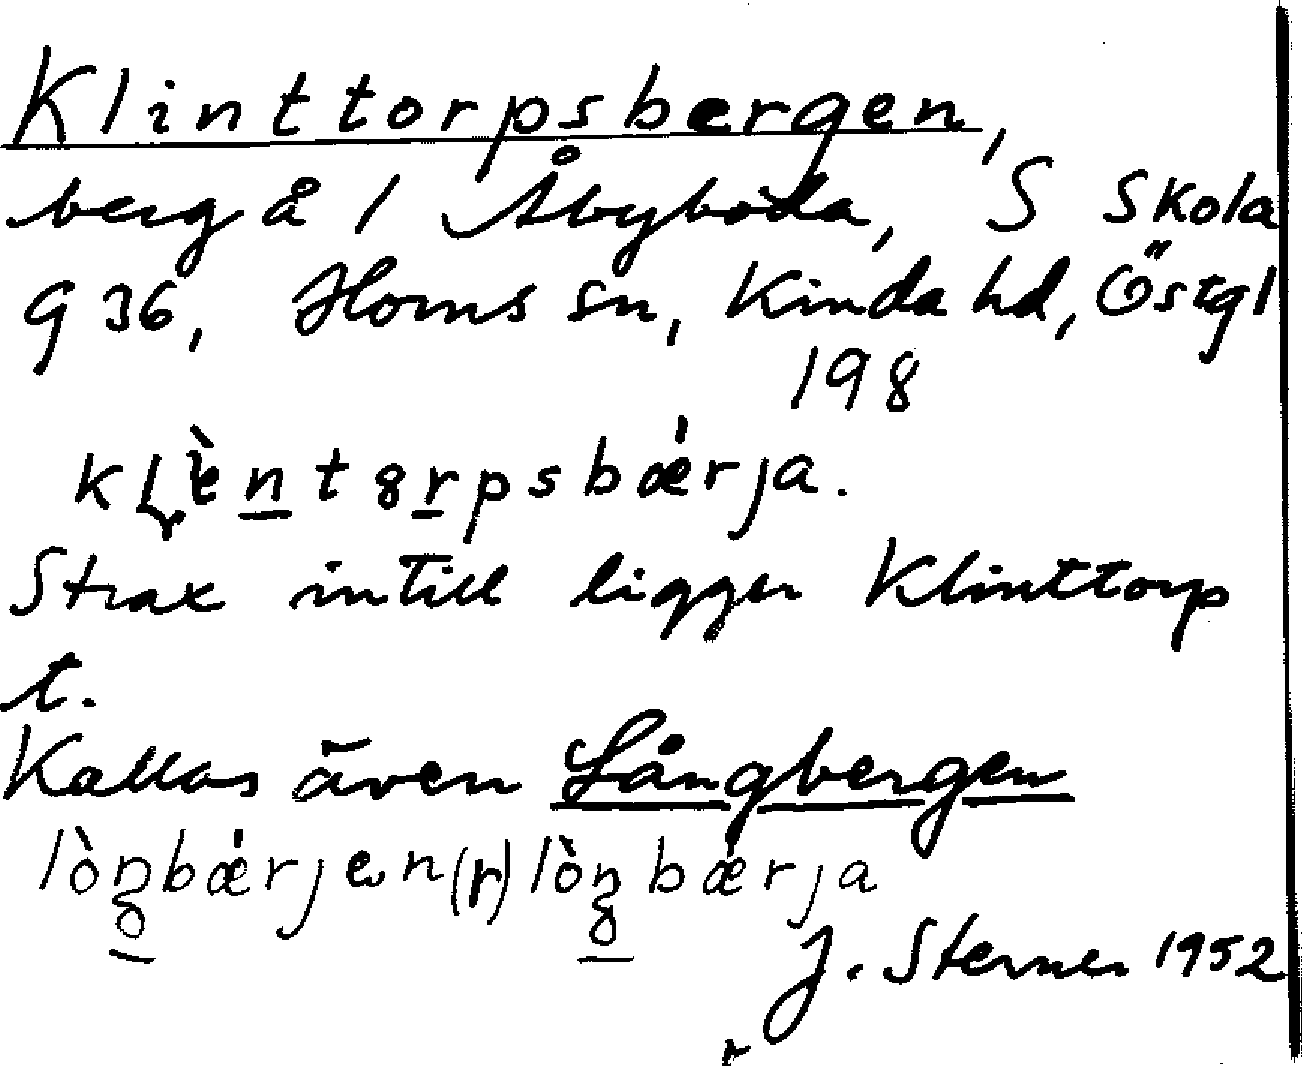 Klinttorpsbergen,
berg å 1 Åbyboda, S Skola
g 36, Horns sn, Kinda hd, Östgl
198
kḷènt8rpsbǽrja.
Strax intill ligger Klinttorp
t.
Kallas även Långbergen
lòŋbǽrjen(r) lòŋbǽrja
J. Sterner 1952